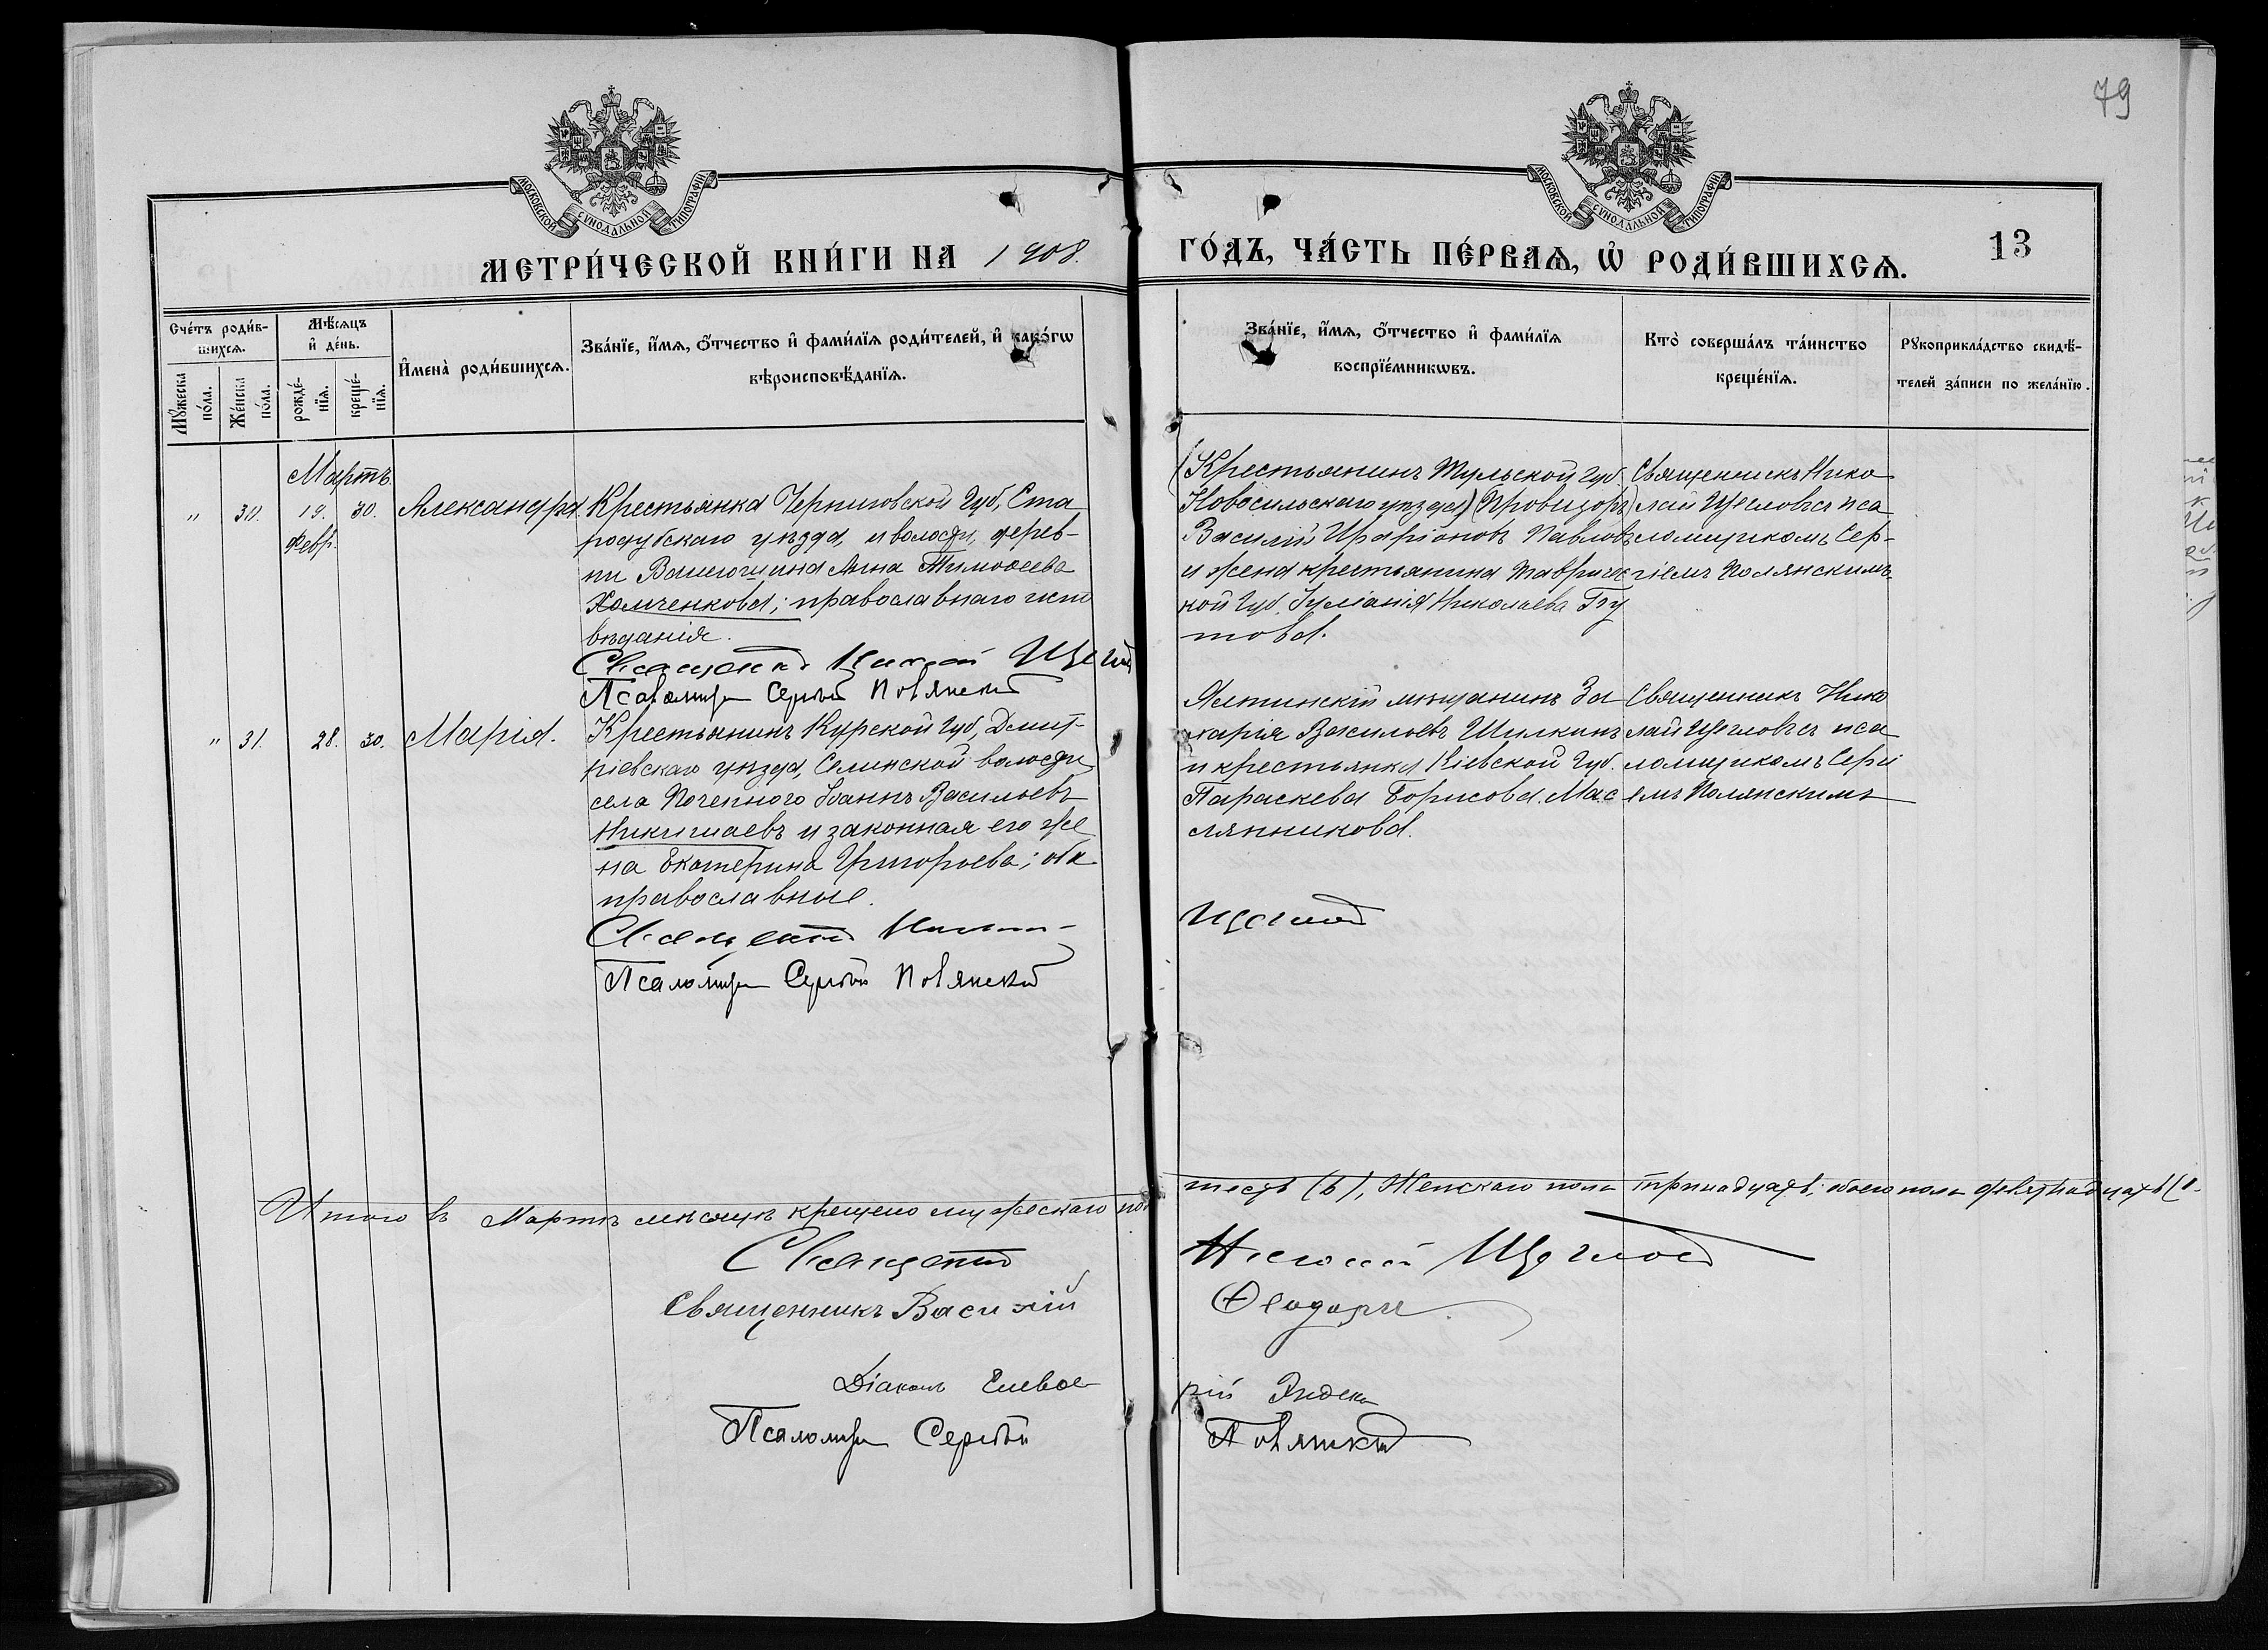 79
МОСКОВСКОЙ СѴНОДАЛЬНОЙ ТИПОГРАФІИ
МОСКОВСКОЙ СѴНОДАЛЬНОЙ ТИПОГРАФІИ
МЕТРИ́ЧЕСКОЙ КНИ́ГИ НА 1908.
ГО́ДЪ, ЧА́СТЬ ПЕ́РВАѦ, Ѡ РОДИ́ВШИХСѦ.
13
Сче́тъ роди́в-
шихсѧ.
Мꙋ́жеска
по́ла.
Же́нска
по́ла.
Мѣ́сѧцъ
и҆ де́нь.
рожде́-
нїѧ.
креще́-
нїѧ.
И҆мена̀ роди́вшихсѧ.
Зва́нїе, и҆́мѧ, ѻ҆́тчество и҆ фами́лїѧ роди́телей, и҆ како́гѡ
вѣроисповѣ́данїѧ.
Зва́нїе, и҆́мѧ, ѻ҆́тчество и҆ фами́лїѧ
воспрїе́мникѡвъ.
Кто̀ соверша́лъ та́инство
креще́нїѧ.
Рꙋкоприкла́дство свидѣ́-
телей за́писи по жела́нїю.
Мартъ.
" 30. 19. 30. Александра
Февр.
Крестьянка Черниговской Губ, Ста
родубскаго уѣзда, и волости, дерев-
ни Анна Тимоѳеева
Хомченкова; православнаго испо
вѣданія.
Священникъ Николай Щегловъ
Псаломщикъ Сергѣй Полянскій
(Крестьянинъ Тульской Губ.
Новосильскаго уѣзда) (Провизоръ)
Василій Иларіоновъ Павловъ
и жена крестьянина Тавричес
кой Губ. Іуліанія Николаева Глу
това.
Священникъ Нико
лай Щегловъ съ пса
ломщикомъ Сер-
гіемъ Полянскимъ
" 31. 28. 30. Марія.
Крестьянинъ Курской Губ, Дмит-
ріевскаго уѣзда, Селинской волости
села Поченного Іоаннъ Васильевъ
Никишаевъ и законная его же
на Екатерина Григорьева; оба
православные.
Священникъ Николай
Псаломщикъ Сергѣй Полянскій
Ялтинскій мѣщанинъ За
харія Васильевъ Шилкинъ
и крестьянка Кіевской Губ.
Параскева Борисова Мас
лянникова.
Щегловъ
Священникъ Нико
лай Щегловъ съ пса
ломщикомъ Сергі
емъ Полянскимъ
Итого въ Мартѣ мѣсяцѣ крещено мужескаго пола
шесть (6), Женскаго пола тринадцать; обоего пола девятнадцать (1-
Священникъ Николай Щегловъ
Священникъ Василій
Діаконъ Елевѳе
рій
Псаломщикъ Сергѣй Полянскій